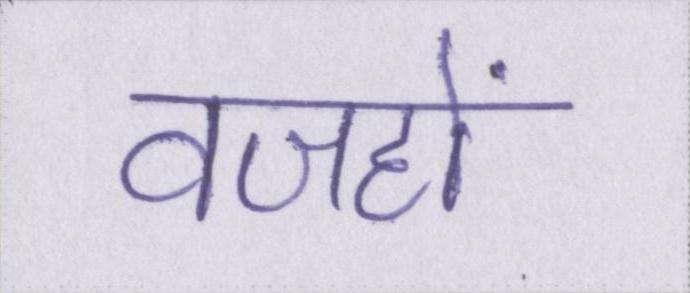 वजहों